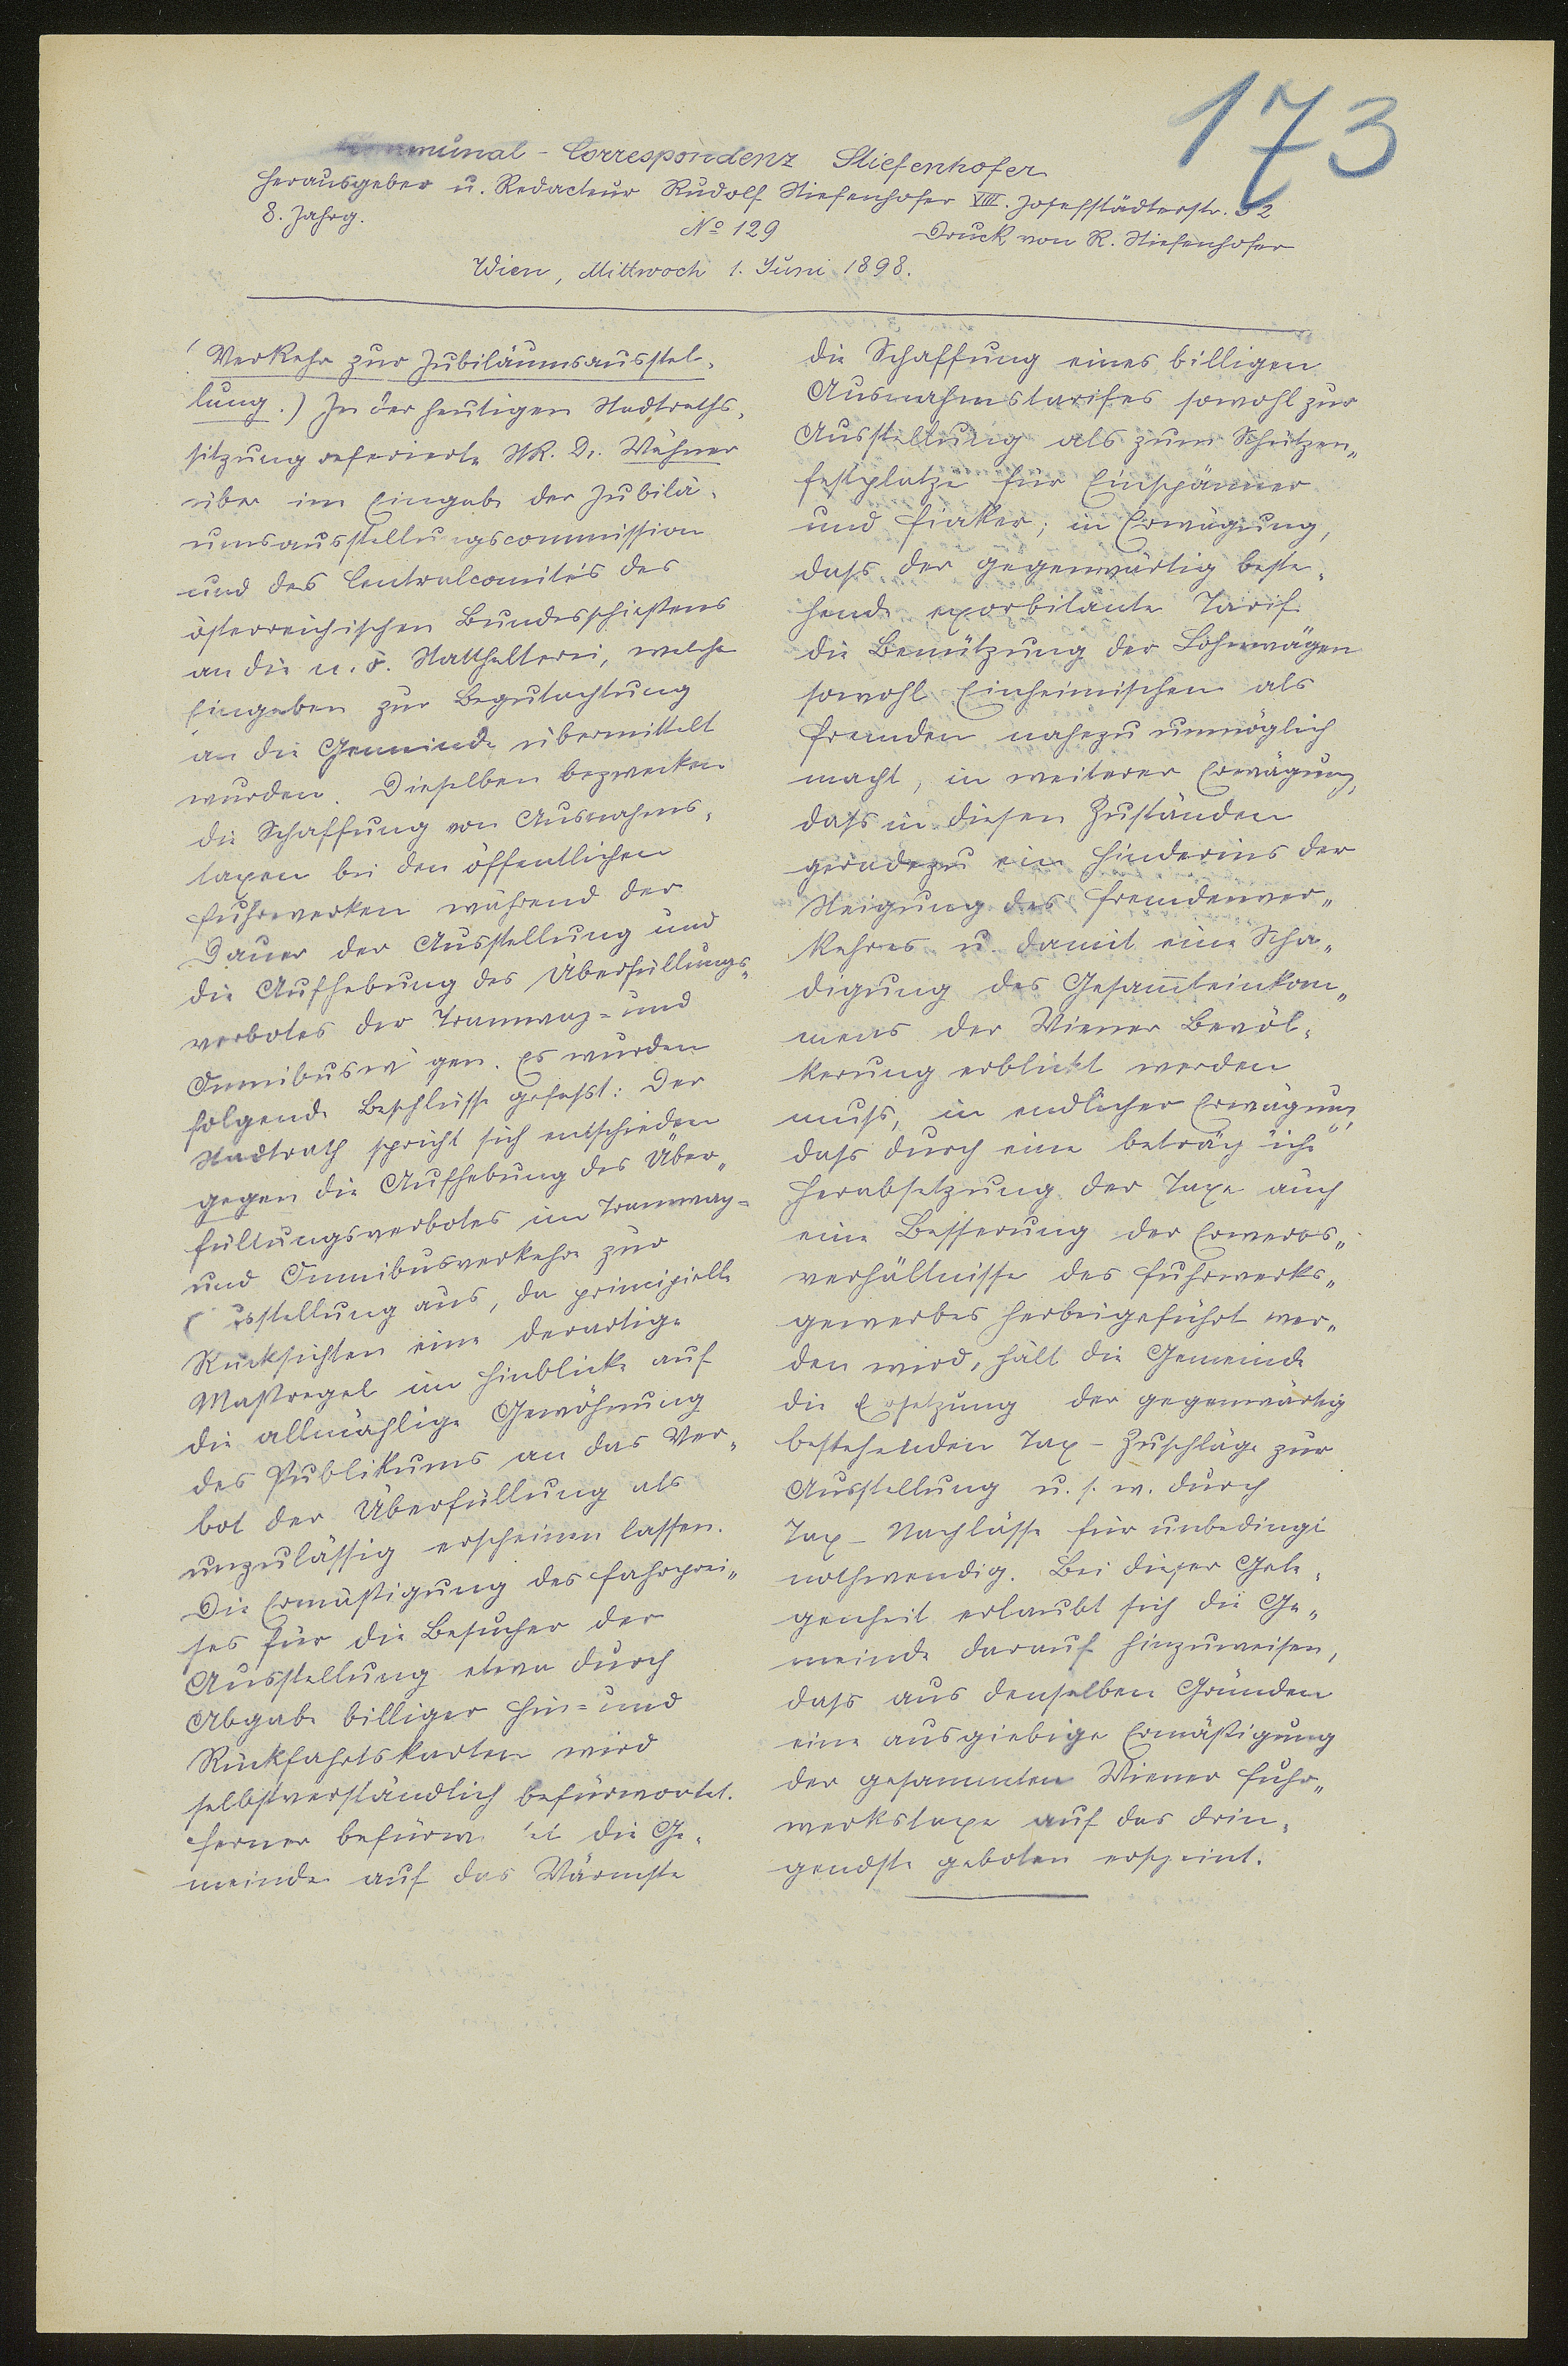 173
Kommunal-Correspondenz Stiefenhofer
Herausgeber u. Redacteur Rudolf Stiefenhofer VIII. Josefstädterstr. 52
8. Jahrg. No 129 Druck von R. Stiefenhofer
Wien, Mittwoch 1. Juni 1898.
(Verkehr zur Jubiläumsausstel-
lung.) In der heutigen Stadtraths-
sitzung referierte StR. Dr. Wähner
über im Eingabe der Jubilä-
umsausstellungscommission
und des Centralcomités des
österreichischen Bundesschießens
an die n. ö. Statthalterei, welche
Eingaben zur Begutachtung
an die Gemeinde übermittelt
wurden. Dieselben bezwecken
die Schaffung von Ausnahms-
taxen bei den öffentlichen
Fuhrwerken während der
Dauer der Ausstellung und
die Aufhebung des Überfüllungs-
verbotes der Tramway- und
Omnibuswägen. Es wurden
folgende Beschlüsse gefasst: Der
Stadtrath spricht sich entschieden
gegen die Aufhebung des Über-
füllungsverbotes im Tramway-
und Omnibusverkehre zur
Ausstellung aus, da principielle
Rücksichten eine derartige
Maßregel im Hinblicke auf
die allmählige Gewöhnung
des Publikums an das Ver-
bot der Überfüllung als
unzulässig erscheinen lassen.
Die Ermäßigung des Fahrprei-
ses für die Besucher der
Ausstellung etwa durch
Abgabe billiger Hin- und
Rückfahrtskarten wird
selbstverständlich befürwortet.
Ferner befürwortet die Ge-
meinde auf das Wärmste
die Schaffung eines billigen
Ausnahmstarifes sowohl zur
Ausstellung als zum Schützen-
festplatze für Einspänner
und Fiaker; in Erwägung,
dass der gegenwärtig beste-
hende exorbitante Tarif
die Benützung der Lohnwägen
sowohl Einheimischen als
Fremden nahezu unmöglich
macht, in weiterer Erwägung,
dass in diesen Zuständen
geradezu ein Hindernis der
Steigung des Fremdenver-
kehres u. damit eine Schä-
digung des Gesam̅teinkom-
mens der Wiener Bevöl-
kerung erblickt werden
muss, in endlicher Erwägung,
dass durch eine beträchtliche
Herabsetzung der Taxe auch
eine Besserung der Erwerbs-
verhältnisse des Fuhrwerks-
gewerbes herbeigeführt wer-
den wird, hält die Gemeinde
die Ersetzung der gegenwärtig
bestehenden Tax-Zuschläge zur
Ausstellung u. s. w. durch
Tax-Nachlässe für unbedingt
nothwendig. Bei dieser Gele-
genheit erlaubt sich die Ge-
meinde darauf hinzuweisen,
dass aus denselben Gründen
eine ausgiebige Ermäßigung
der gesammten Wiener Fuhr-
werkstaxe auf das drin-
gendste geboten erscheint.